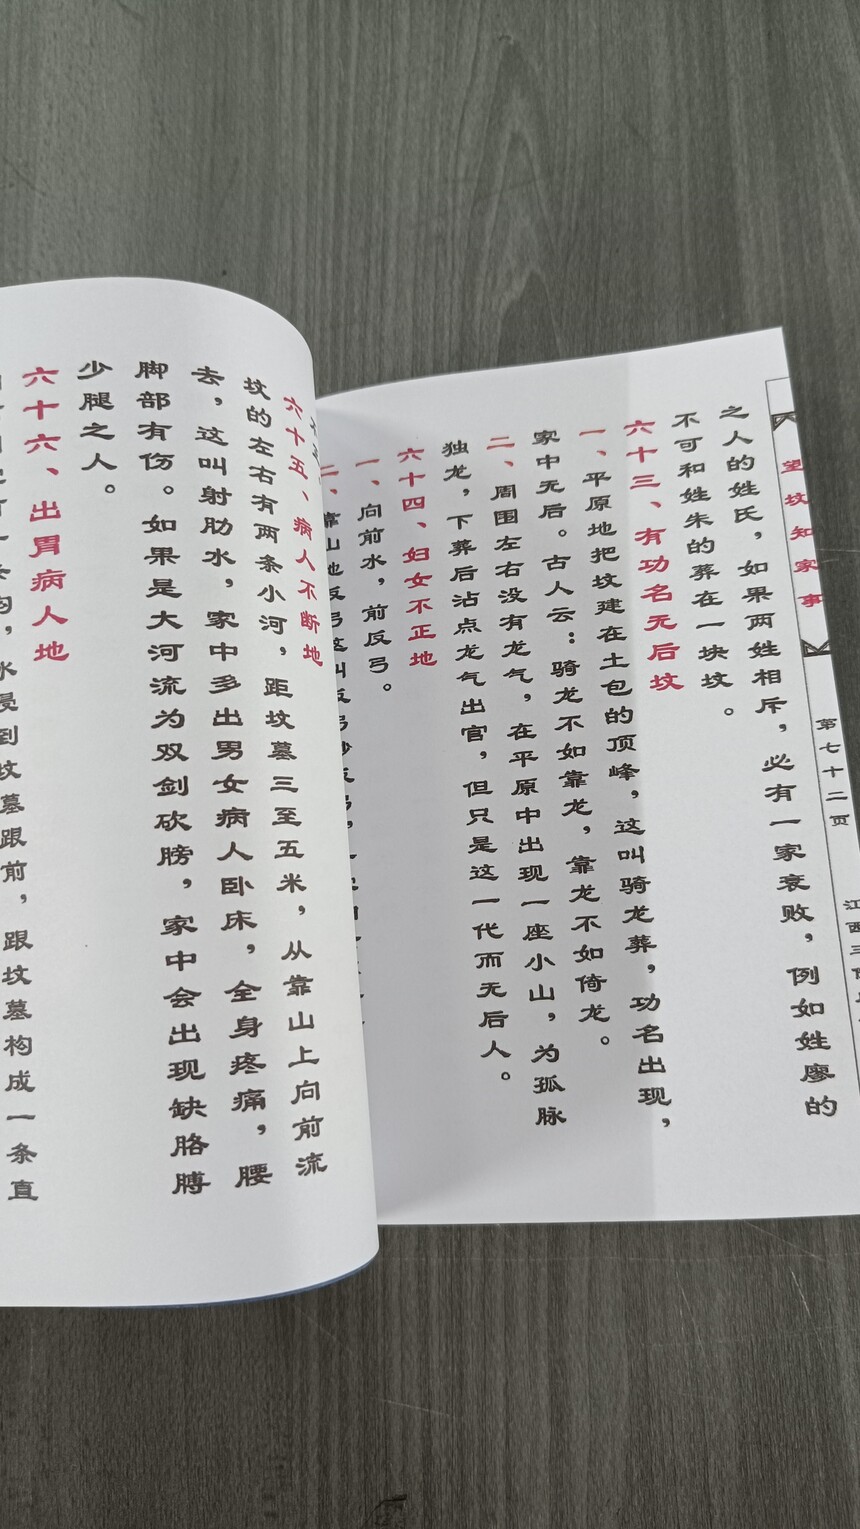 望坟知家事
第七十二页
江西三
之人的姓氏，如果两姓相斥，必有一家衰败，例如姓廖的
不可和姓朱的葬在一块坟。
六十三、有功名无后坟
一、平原地把坟建在土包的顶峰，这叫骑龙葬，功名出现，
家中无后。古人云：骑龙不如靠龙，靠龙不如倚龙。
二、周围左右没有龙气，在平原中出现一座小山，为孤脉
独龙，下葬后沾点龙气出官，但只是这一代而无后人。
六十四、妇女不正地
一、向前水，前反弓。
二、靠山地反弓这叫反弓
六十五、病人不断地
坟的左右有两条小河，距坟墓三至五米，从靠山上向前流
去，这叫射肋水，家中多出男女病人卧床，全身疼痛，腰
脚部有伤。如果是大河流为双剑砍膀，家中会出现缺胳膊
少腿之人。
六十六、出胃病人地
沟，水浸到坟墓跟前，跟坟墓构成一条直